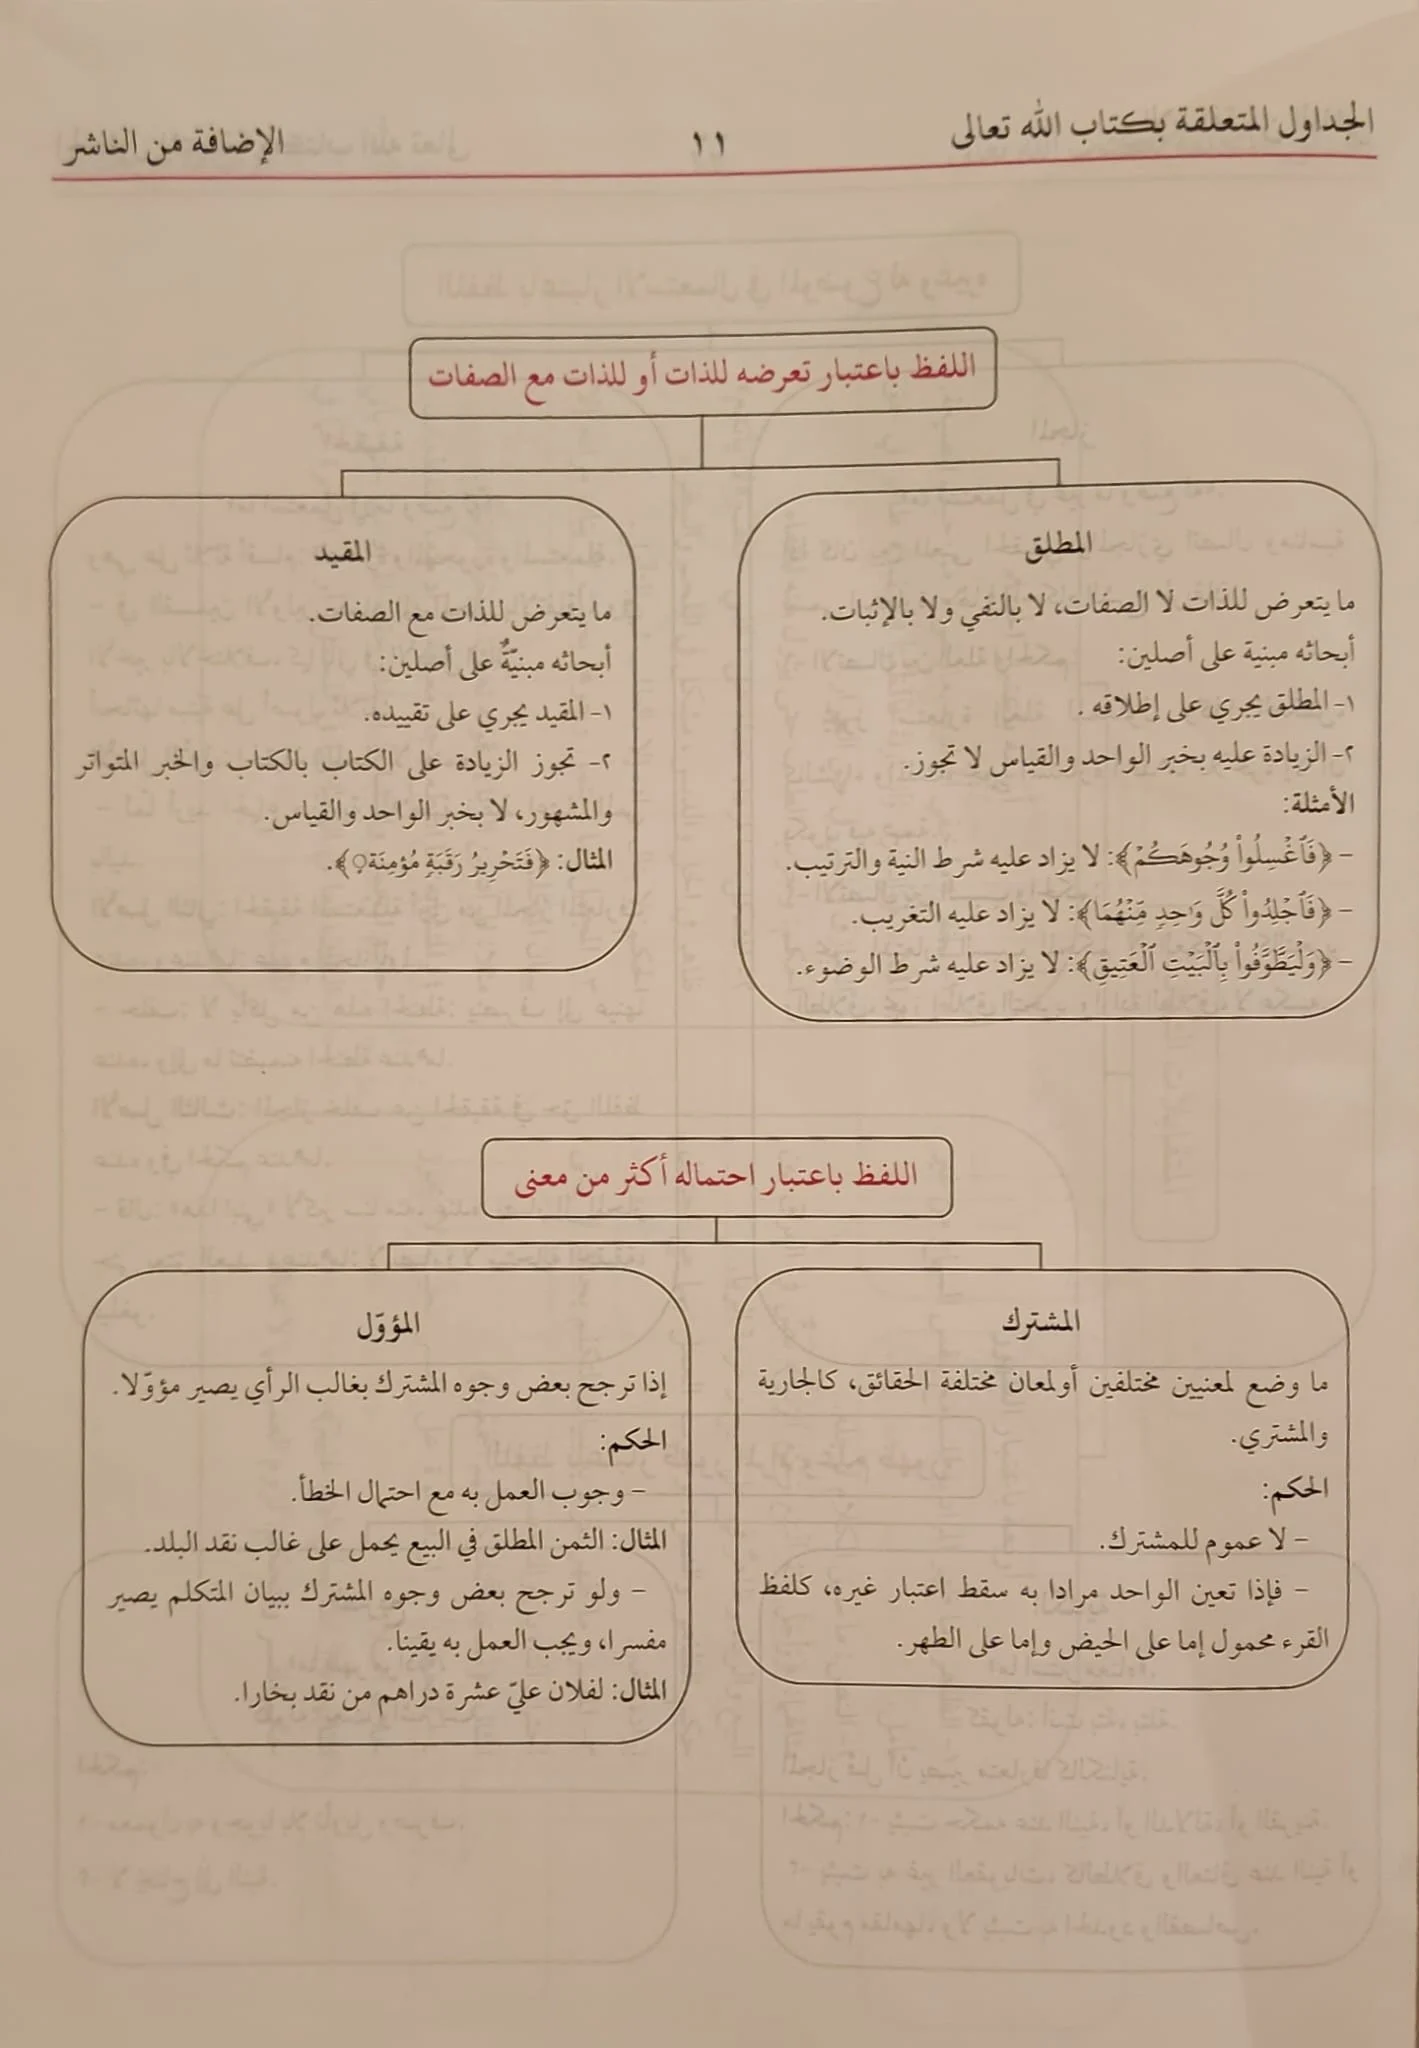 الجداول المتعلقة بكتاب الله تعالى ١١ الإضافة من الناشر
اللفظ باعتبار تعرضه للذات أو للذات مع الصفات
المطلق
ما يتعرض للذات لا الصفات، لا بالنفي ولا بالإثبات.
أبحاثه مبنية على أصلين:
١- المطلق يجري على إطلاقه .
٢- الزيادة عليه بخبر الواحد والقياس لا تجوز.
الأمثلة:
- ﴿فَٱغْسِلُوا۟ وُجُوهَكُمْ﴾: لا يزاد عليه شرط النية والترتيب.
- ﴿فَٱجْلِدُوا۟ كُلَّ وَٰحِدٍ مِّنْهُمَا﴾: لا يزاد عليه التغريب.
- ﴿وَلْيَطَّوَّفُوا۟ بِٱلْبَيْتِ ٱلْعَتِيقِ﴾: لا يزاد عليه شرط الوضوء.
المقيد
ما يتعرض للذات مع الصفات.
أبحاثه مبنيّةٌ على أصلين:
١- المقيد يجري على تقييده.
٢- تجوز الزيادة على الكتاب بالكتاب والخبر المتواتر
والمشهور، لا بخبر الواحد والقياس.
المثال: ﴿فَتَحْرِيرُ رَقَبَةٍ مُؤْمِنَة﴾.
اللفظ باعتبار احتماله أكثر من معنى
المشترك
ما وضع لمعنيين مختلفين أولمعان مختلفة الحقائق، كالجارية
والمشتري.
الحكم:
- لا عموم للمشترك.
- فإذا تعين الواحد مرادا به سقط اعتبار غيره، كلفظ
القرء محمول إما على الحيض وإما على الطهر.
المؤوّل
إذا ترجح بعض وجوه المشترك بغالب الرأي يصير مؤوّلا.
الحكم:
- وجوب العمل به مع احتمال الخطأ.
المثال: الثمن المطلق في البيع يحمل على غالب نقد البلد.
- ولو ترجح بعض وجوه المشترك ببيان المتكلم يصير
مفسرا، ويجب العمل به يقينا.
المثال: لفلان عليّ عشرة دراهم من نقد بخارا.